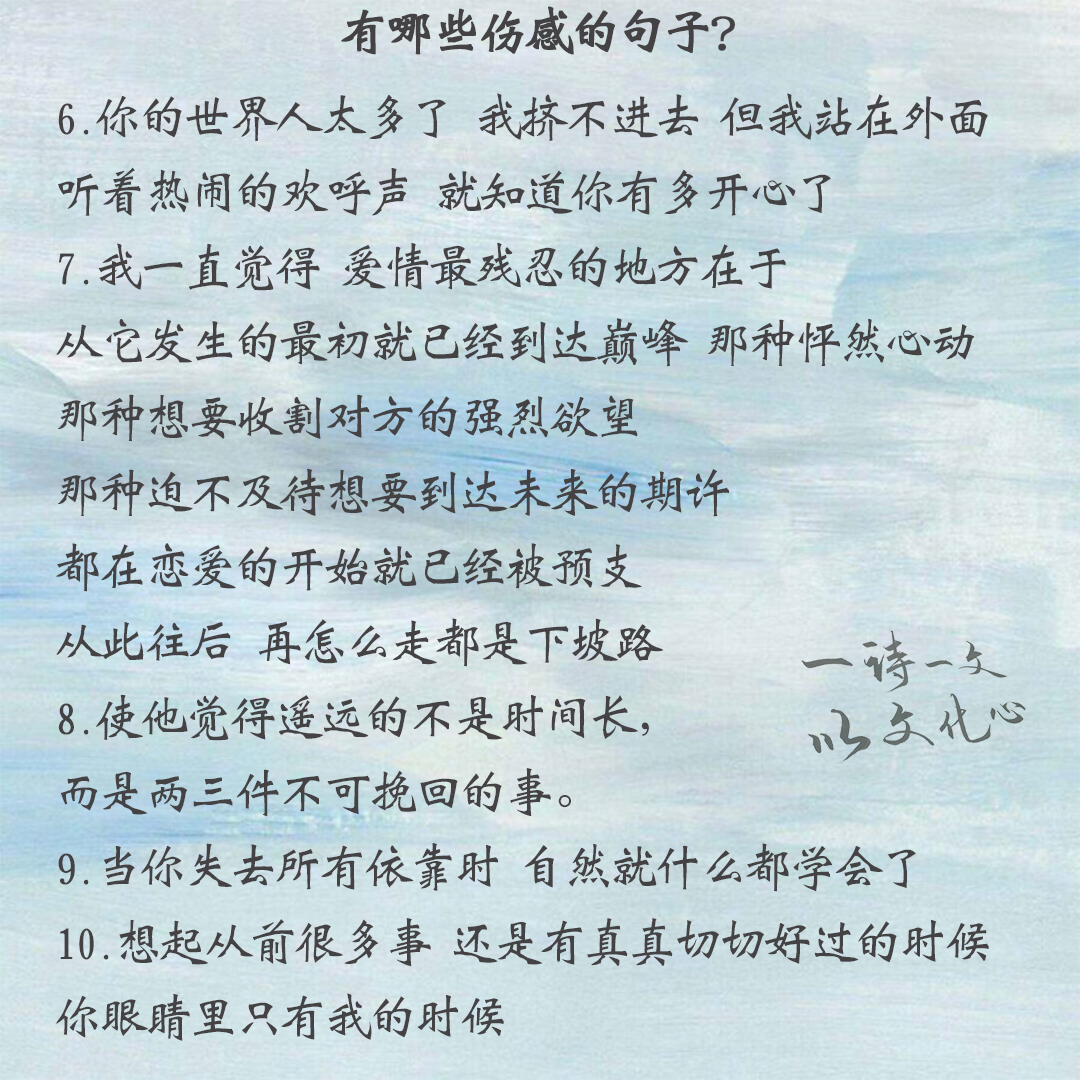 有哪些伤感的句子?
6.你的世界人太多了 我挤不进去 但我站在外面
听着热闹的欢呼声 就知道你有多开心了
7.我一直觉得 爱情最残忍的地方在于
从它发生的最初就已经到达巅峰 那种怦然心动
那种想要收割对方的强烈欲望
那种迫不及待想要到达未来的期许
都在恋爱的开始就已经被预支
从此往后 再怎么走都是下坡路
一诗一文
以文化心
8.使他觉得遥远的不是时间长,
而是两三件不可挽回的事。
9.当你失去所有依靠时 自然就什么都学会了
10.想起从前很多事 还是有真真切切好过的时候
你眼睛里只有我的时候